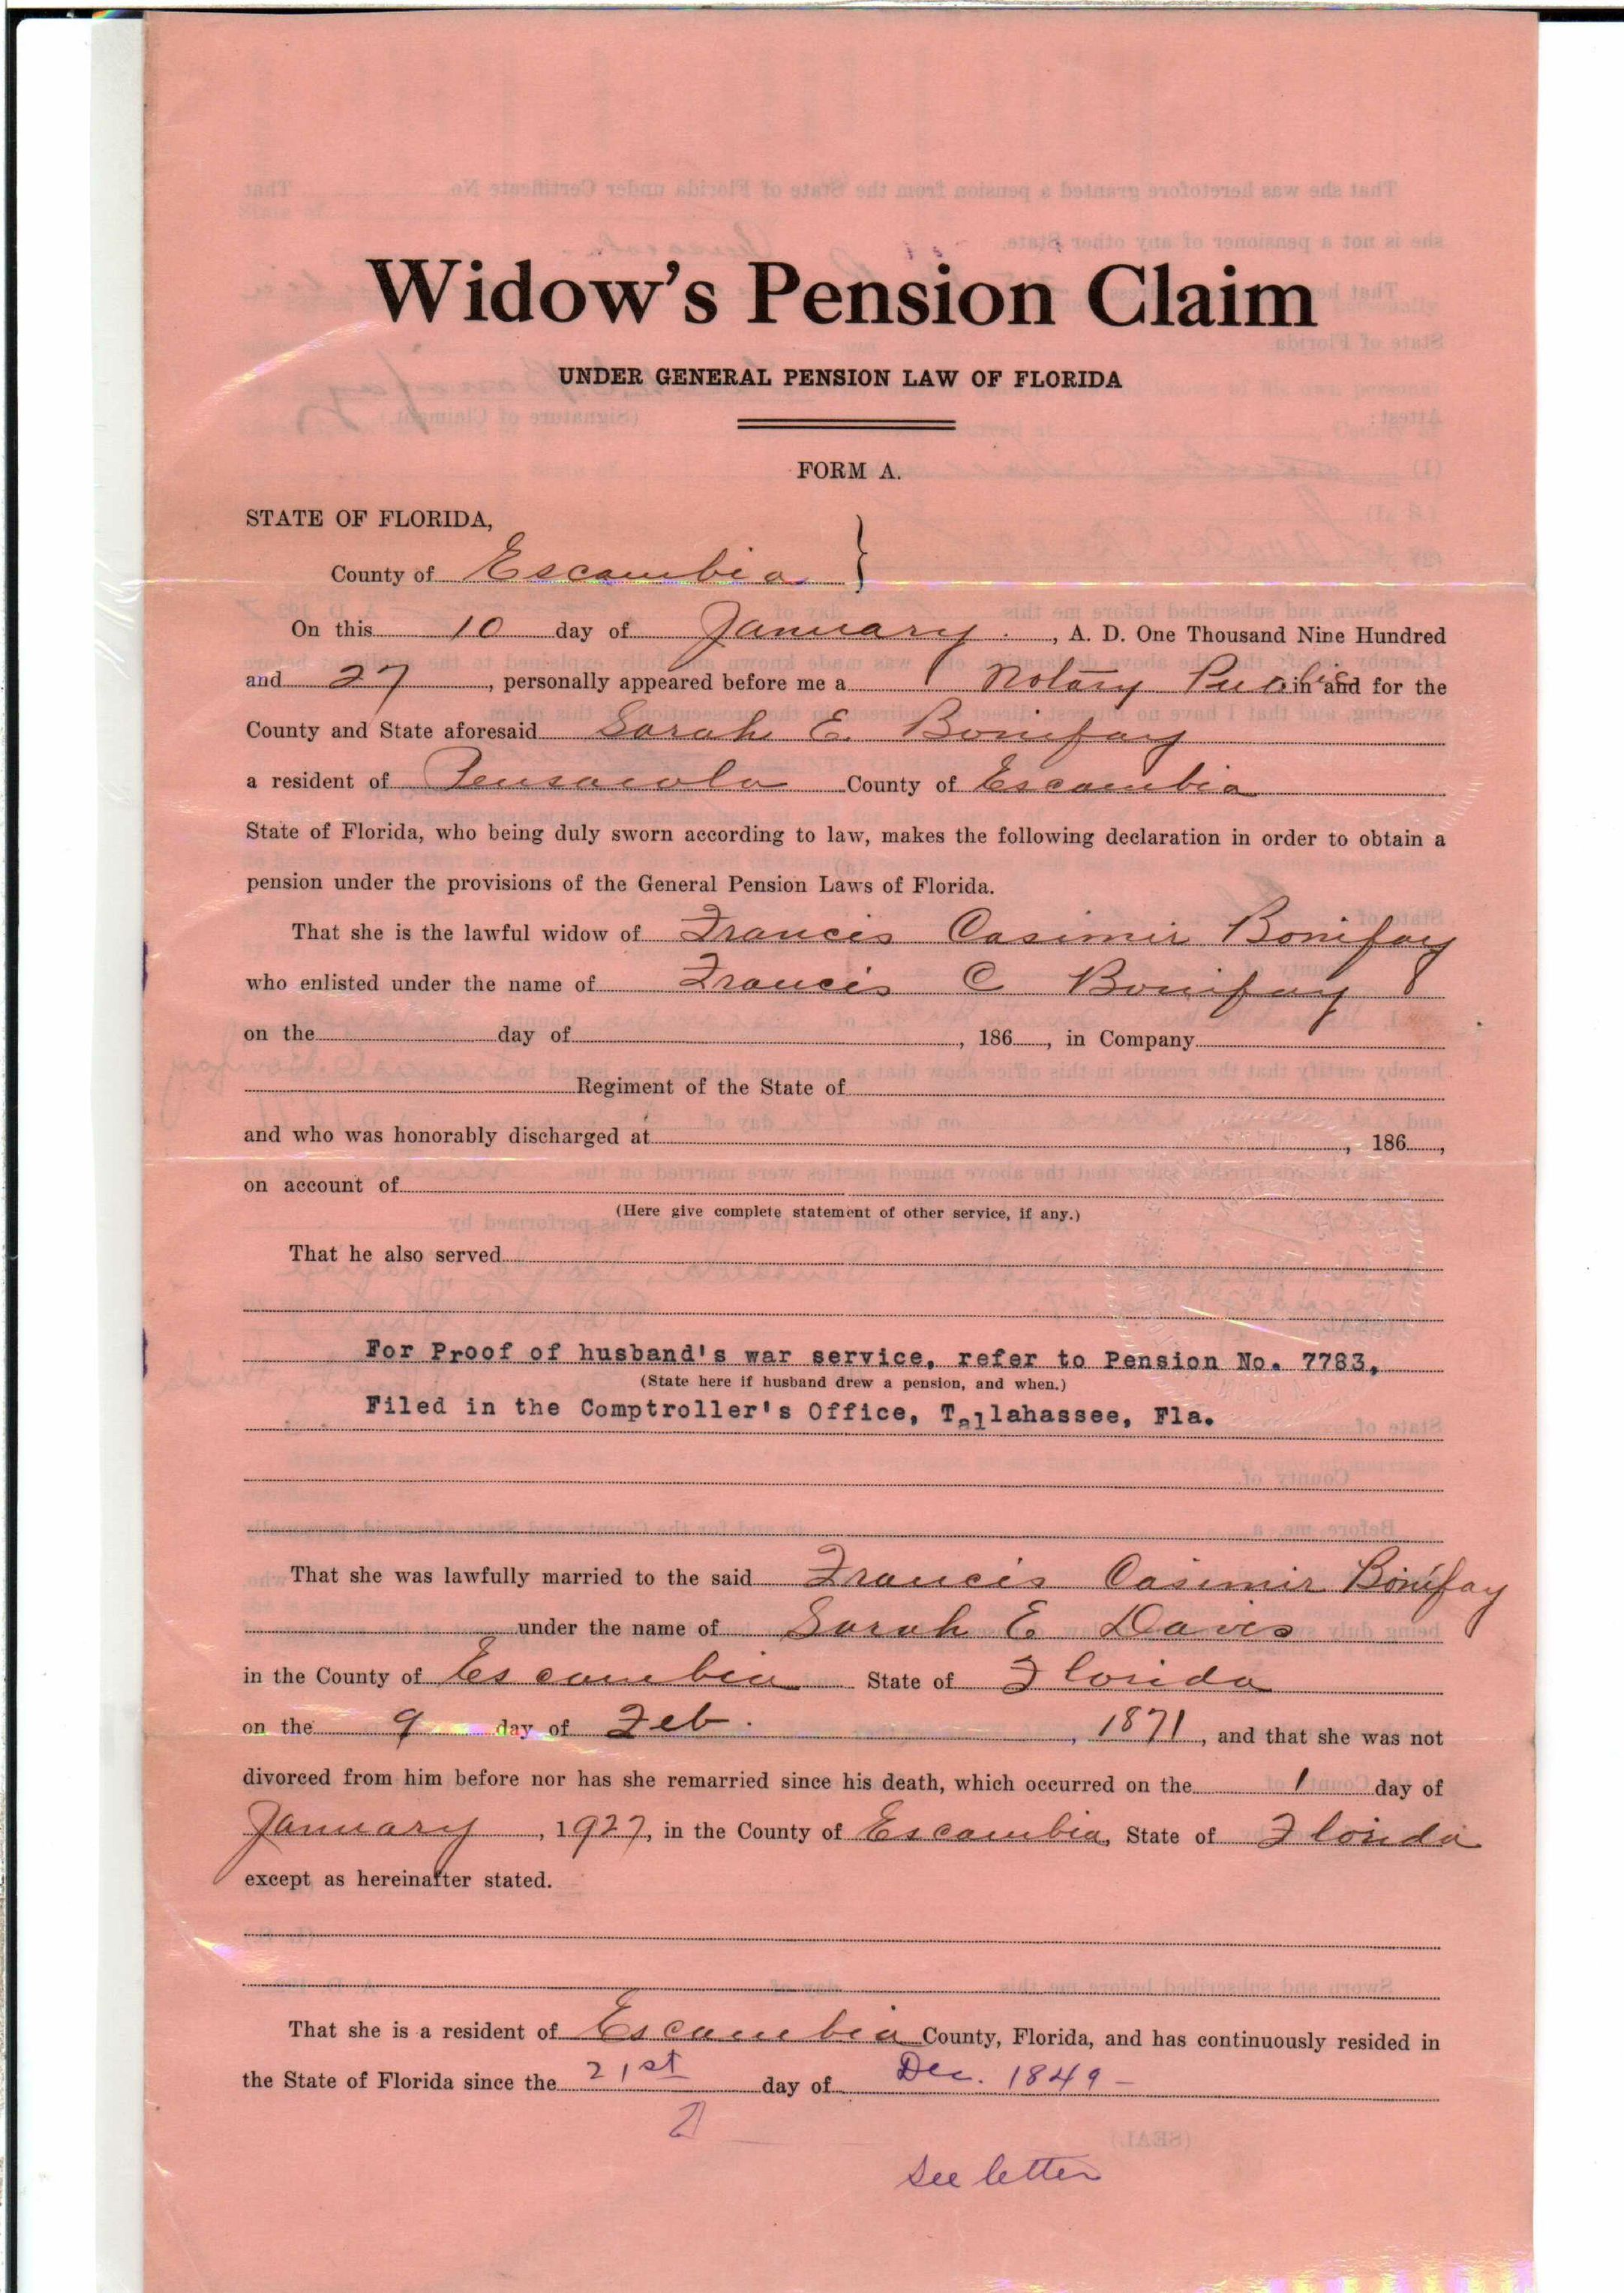 Widow's Pension Claim
UNDER GENERAL PENSION LAW OF FLORIDA
FORM A.
STATE OF FLORIDA,
County of Escambia }
On this 10 day of January, A. D. One Thousand Nine Hundred
and 27, personally appeared before me a Notary Public in and for the
County and State aforesaid Sarah E. Bonifay
a resident of Pensacola County of Escambia
State of Florida, who being duly sworn according to law, makes the following declaration in order to obtain a
pension under the provisions of the General Pension Laws of Florida.
That she is the lawful widow of Francis Casimir Bonifay
who enlisted under the name of Francis C Bonifay
on the day of , 186 , in Company
Regiment of the State of
and who was honorably discharged at , 186 ,
on account of
(Here give complete statement of other service, if any.)
That he also served
For Proof of husband's war service, refer to Pension No. 7783,
(State here if husband drew a pension, and when.)
Filed in the Comptroller's Office, Tallahassee, Fla.
That she was lawfully married to the said Francis Casimir Bonifay
under the name of Sarah E Davis
in the County of Escambia State of Florida
on the 9 day of Feb. , 1871, and that she was not
divorced from him before nor has she remarried since his death, which occurred on the 1 day of
January, 1927, in the County of Escambia, State of Florida
except as hereinafter stated.
That she is a resident of Escambia County, Florida, and has continuously resided in
the State of Florida since the 21st day of Dec. 1849 –
See letter